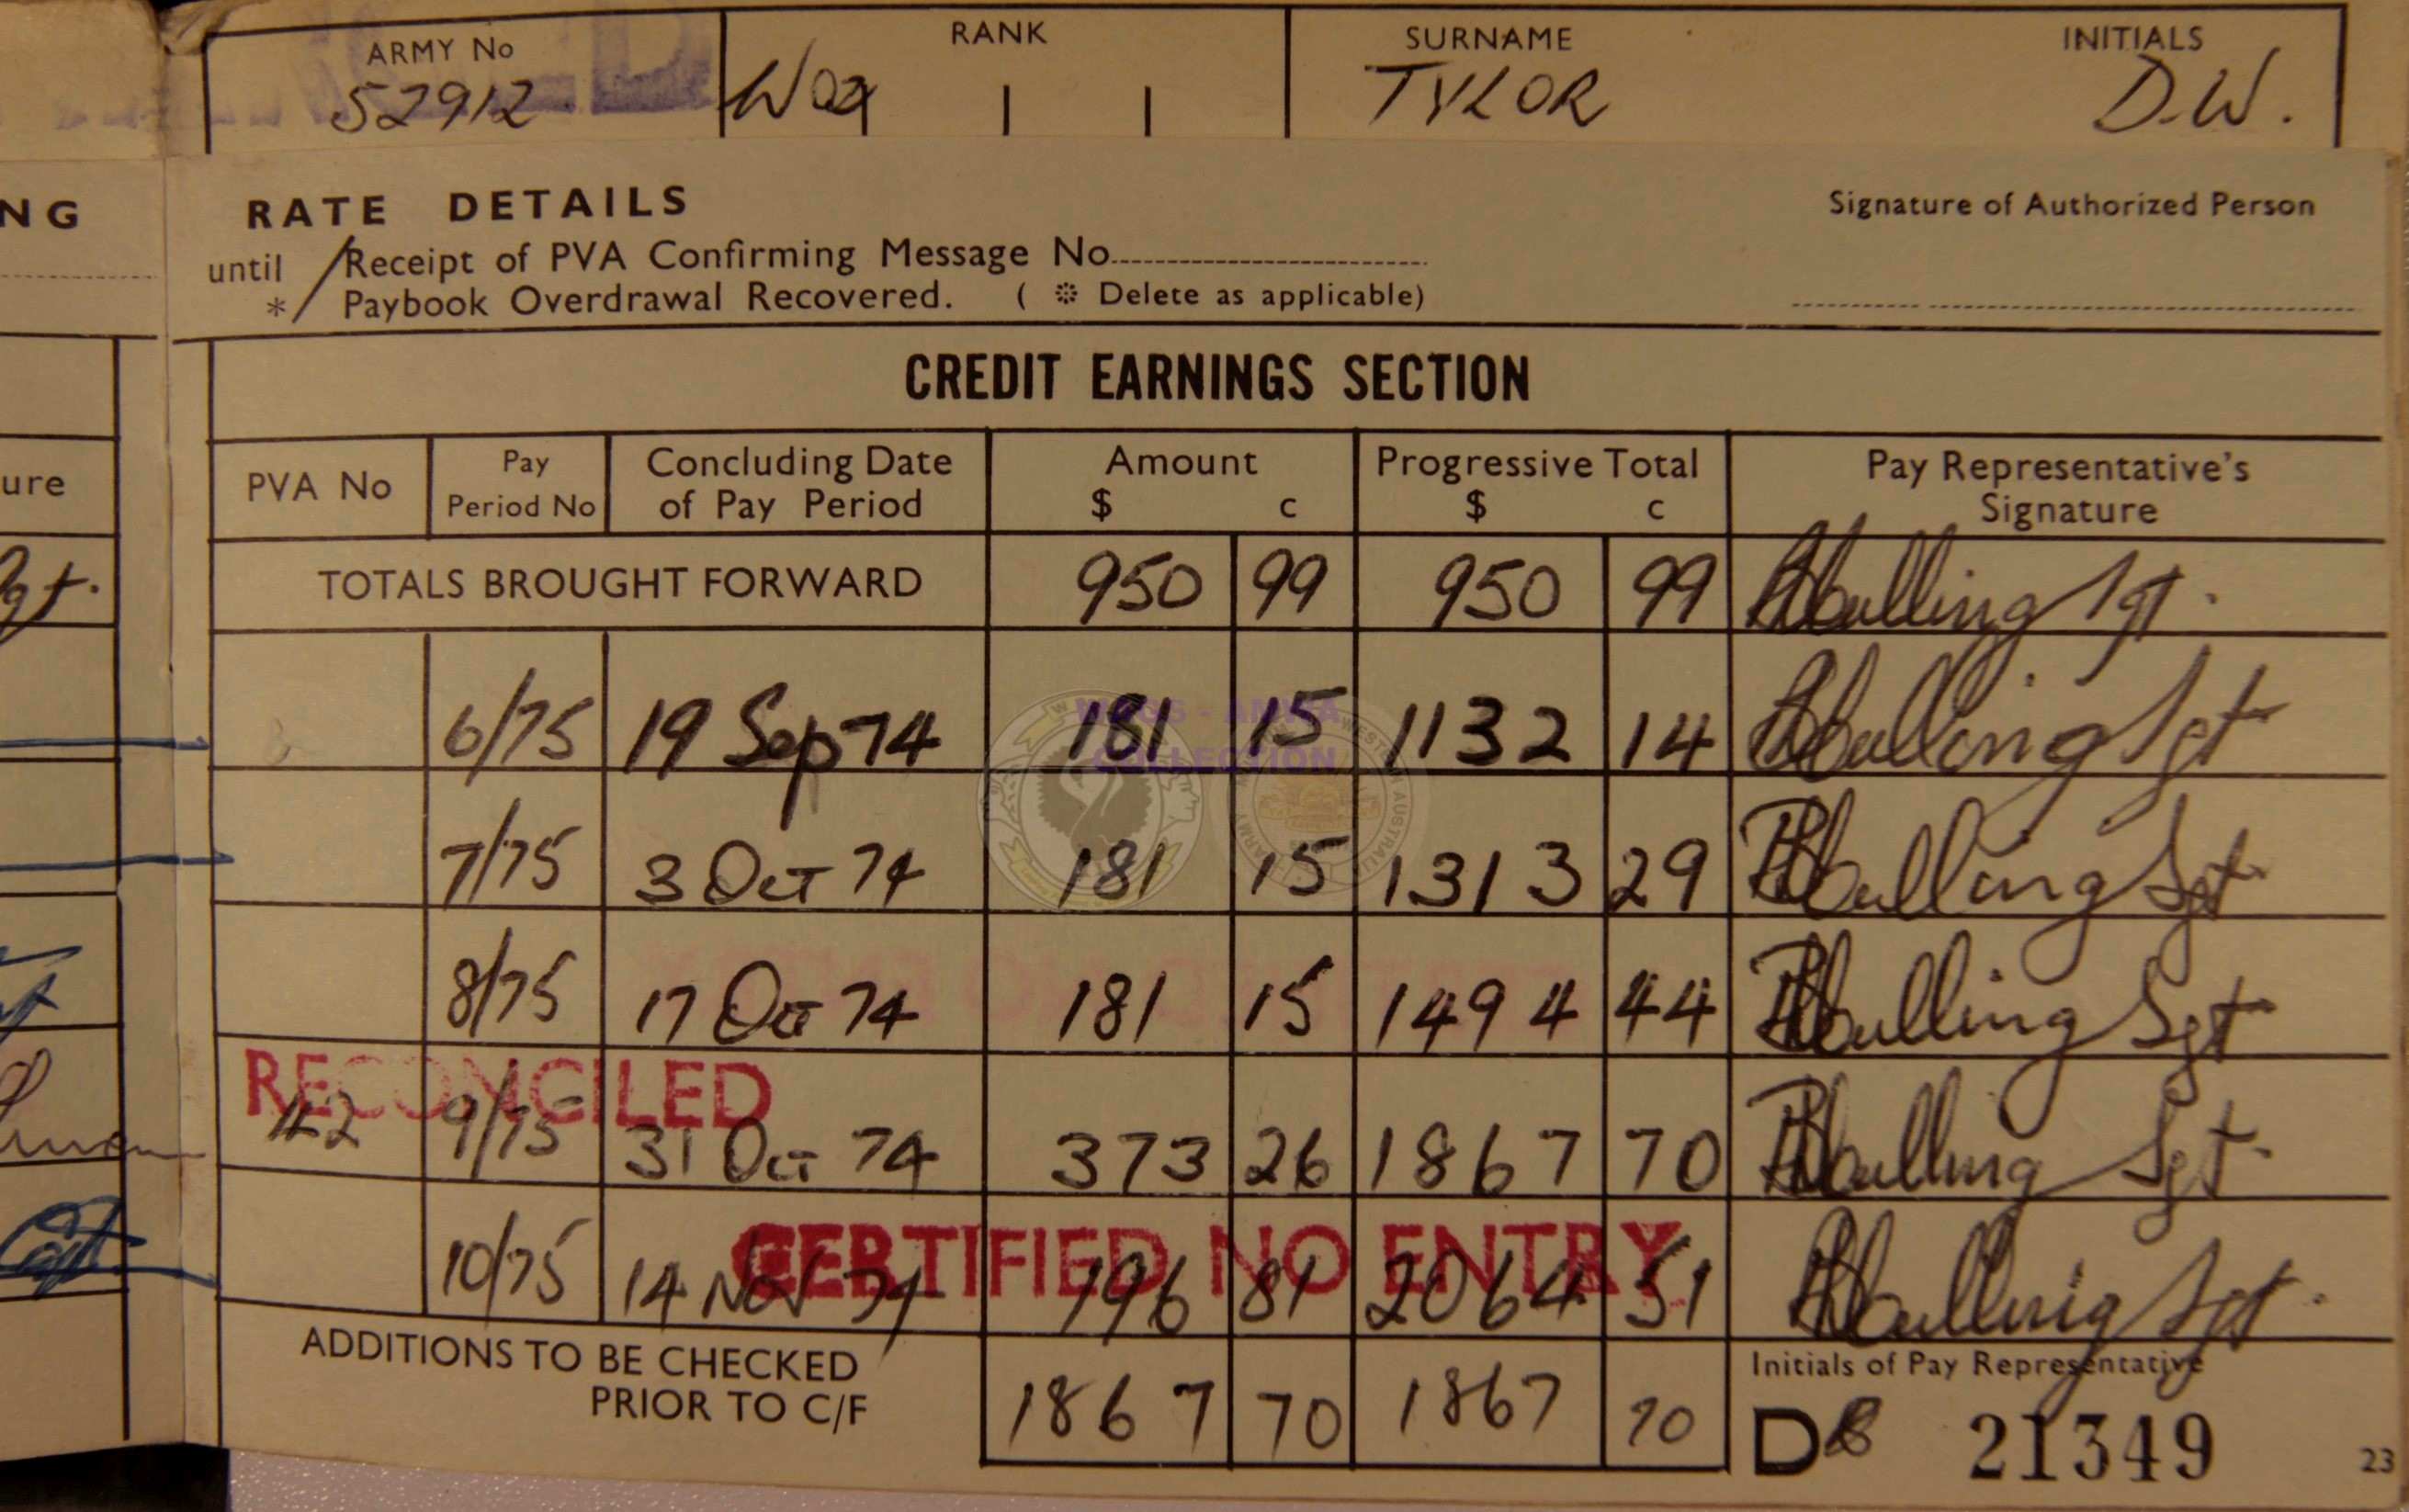 ARMY No RANK SURNAME INITIALS
52912 TYLOR D.W.
NG RATE DETAILS Signature of Authorized Person
until / Receipt of PVA Confirming Message No
* / Paybook Overdrawal Recovered. ( * Delete as applicable)
CREDIT EARNINGS SECTION
ure PVA No Pay Period No Concluding Date of Pay Period Amount $ c Progressive Total $ c Pay Representative's Signature
TOTALS BROUGHT FORWARD 950 99 950 99 Sgt.
6/75 19 Sep 74 181 15 1132 14 Sgt
7/75 3 Oct 74 181 15 1313 29 Sgt
8/75 17 Oct 74 181 15 1494 44 Sgt
RECONCILED
9/75 31 Oct 74 373 26 1867 70 Sgt
CERTIFIED NO ENTRY
10/75 14 Nov 74 196 81 2064 51 Sgt.
ADDITIONS TO BE CHECKED
PRIOR TO C/F 1867 70 1867 70
Initials of Pay Representative
21349 23